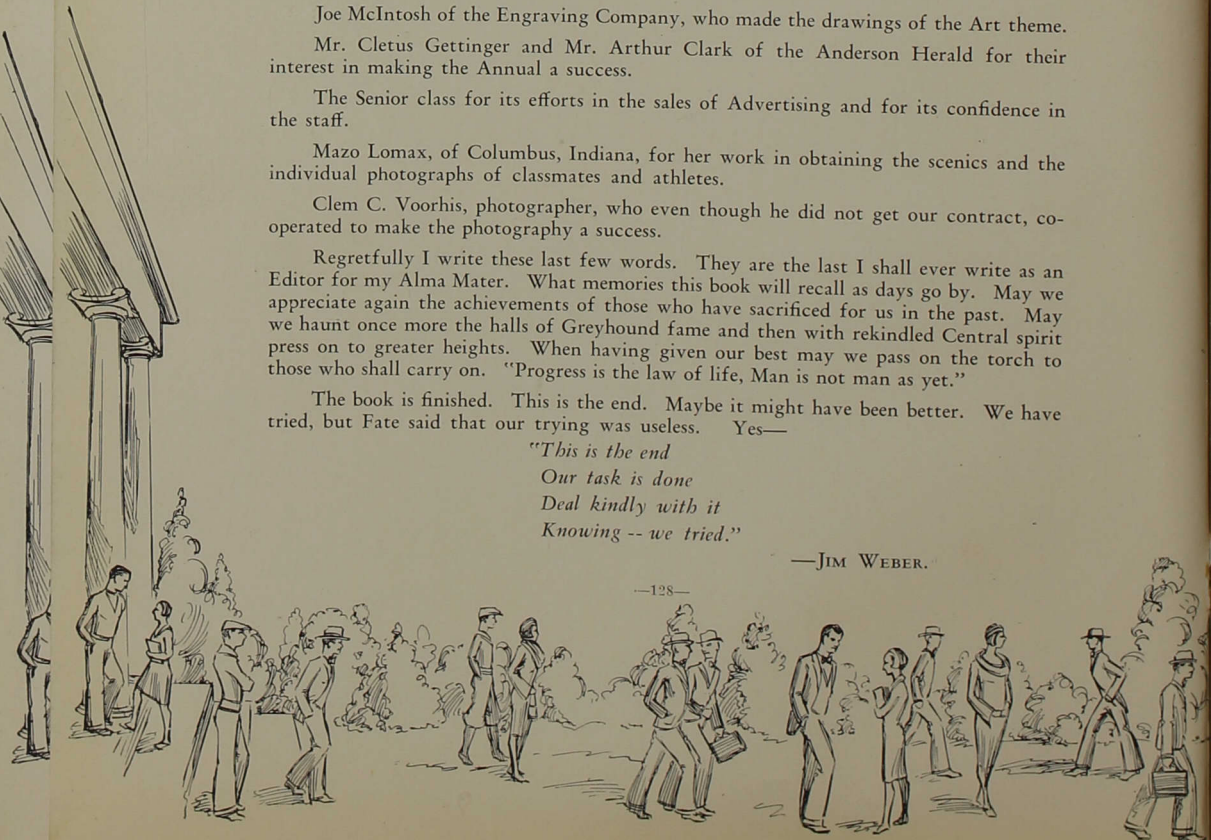 Joe McIntosh of the Engraving Company, who made the drawings of the Art theme.
Mr. Cletus Gettinger and Mr. Arthur Clark of the Anderson Herald for their
interest in making the Annual a success.
The Senior class for its efforts in the sales of Advertising and for its confidence in
the staff.
Mazo Lomax, of Columbus, Indiana, for her work in obtaining the scenics and the
individual photographs of classmates and athletes.
Clem C. Voorhis, photographer, who even though he did not get our contract, co-
operated to make the photography a success.
Regretfully I write these last few words. They are the last I shall ever write as an
Editor for my Alma Mater. What memories this book will recall as days go by. May we
appreciate again the achievements of those who have sacrificed for us in the past. May
we haunt once more the halls of Greyhound fame and then with rekindled Central spirit
press on to greater heights. When having given our best may we pass on the torch to
those who shall carry on. "Progress is the law of life, Man is not man as yet."
The book is finished. This is the end. Maybe it might have been better. We have
tried, but Fate said that our trying was useless. Yes—
"This is the end
Our task is done
Deal kindly with it
Knowing -- we tried."
—JIM WEBER.
—128—